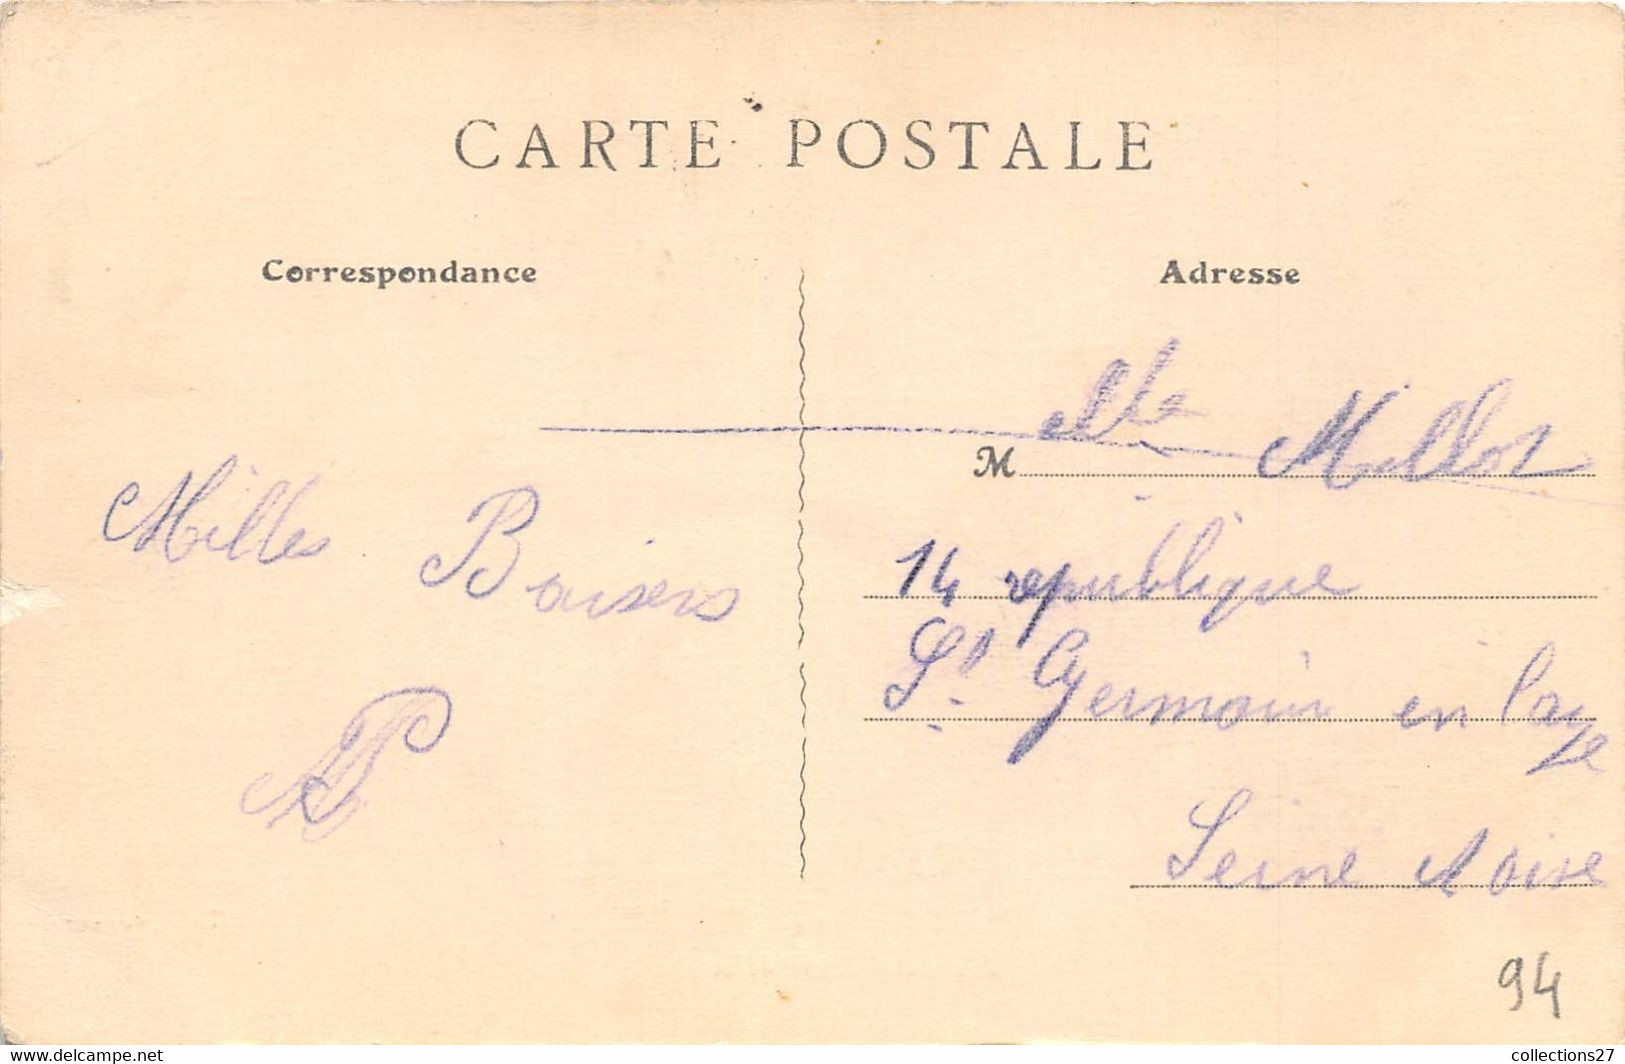 CARTE POSTALE
Correspondance
Adresse
Mlle Millot
M
Milles Baisers
14 republique
St Germain en laye
Seine & oise
94
www.delcampe.net
collections27